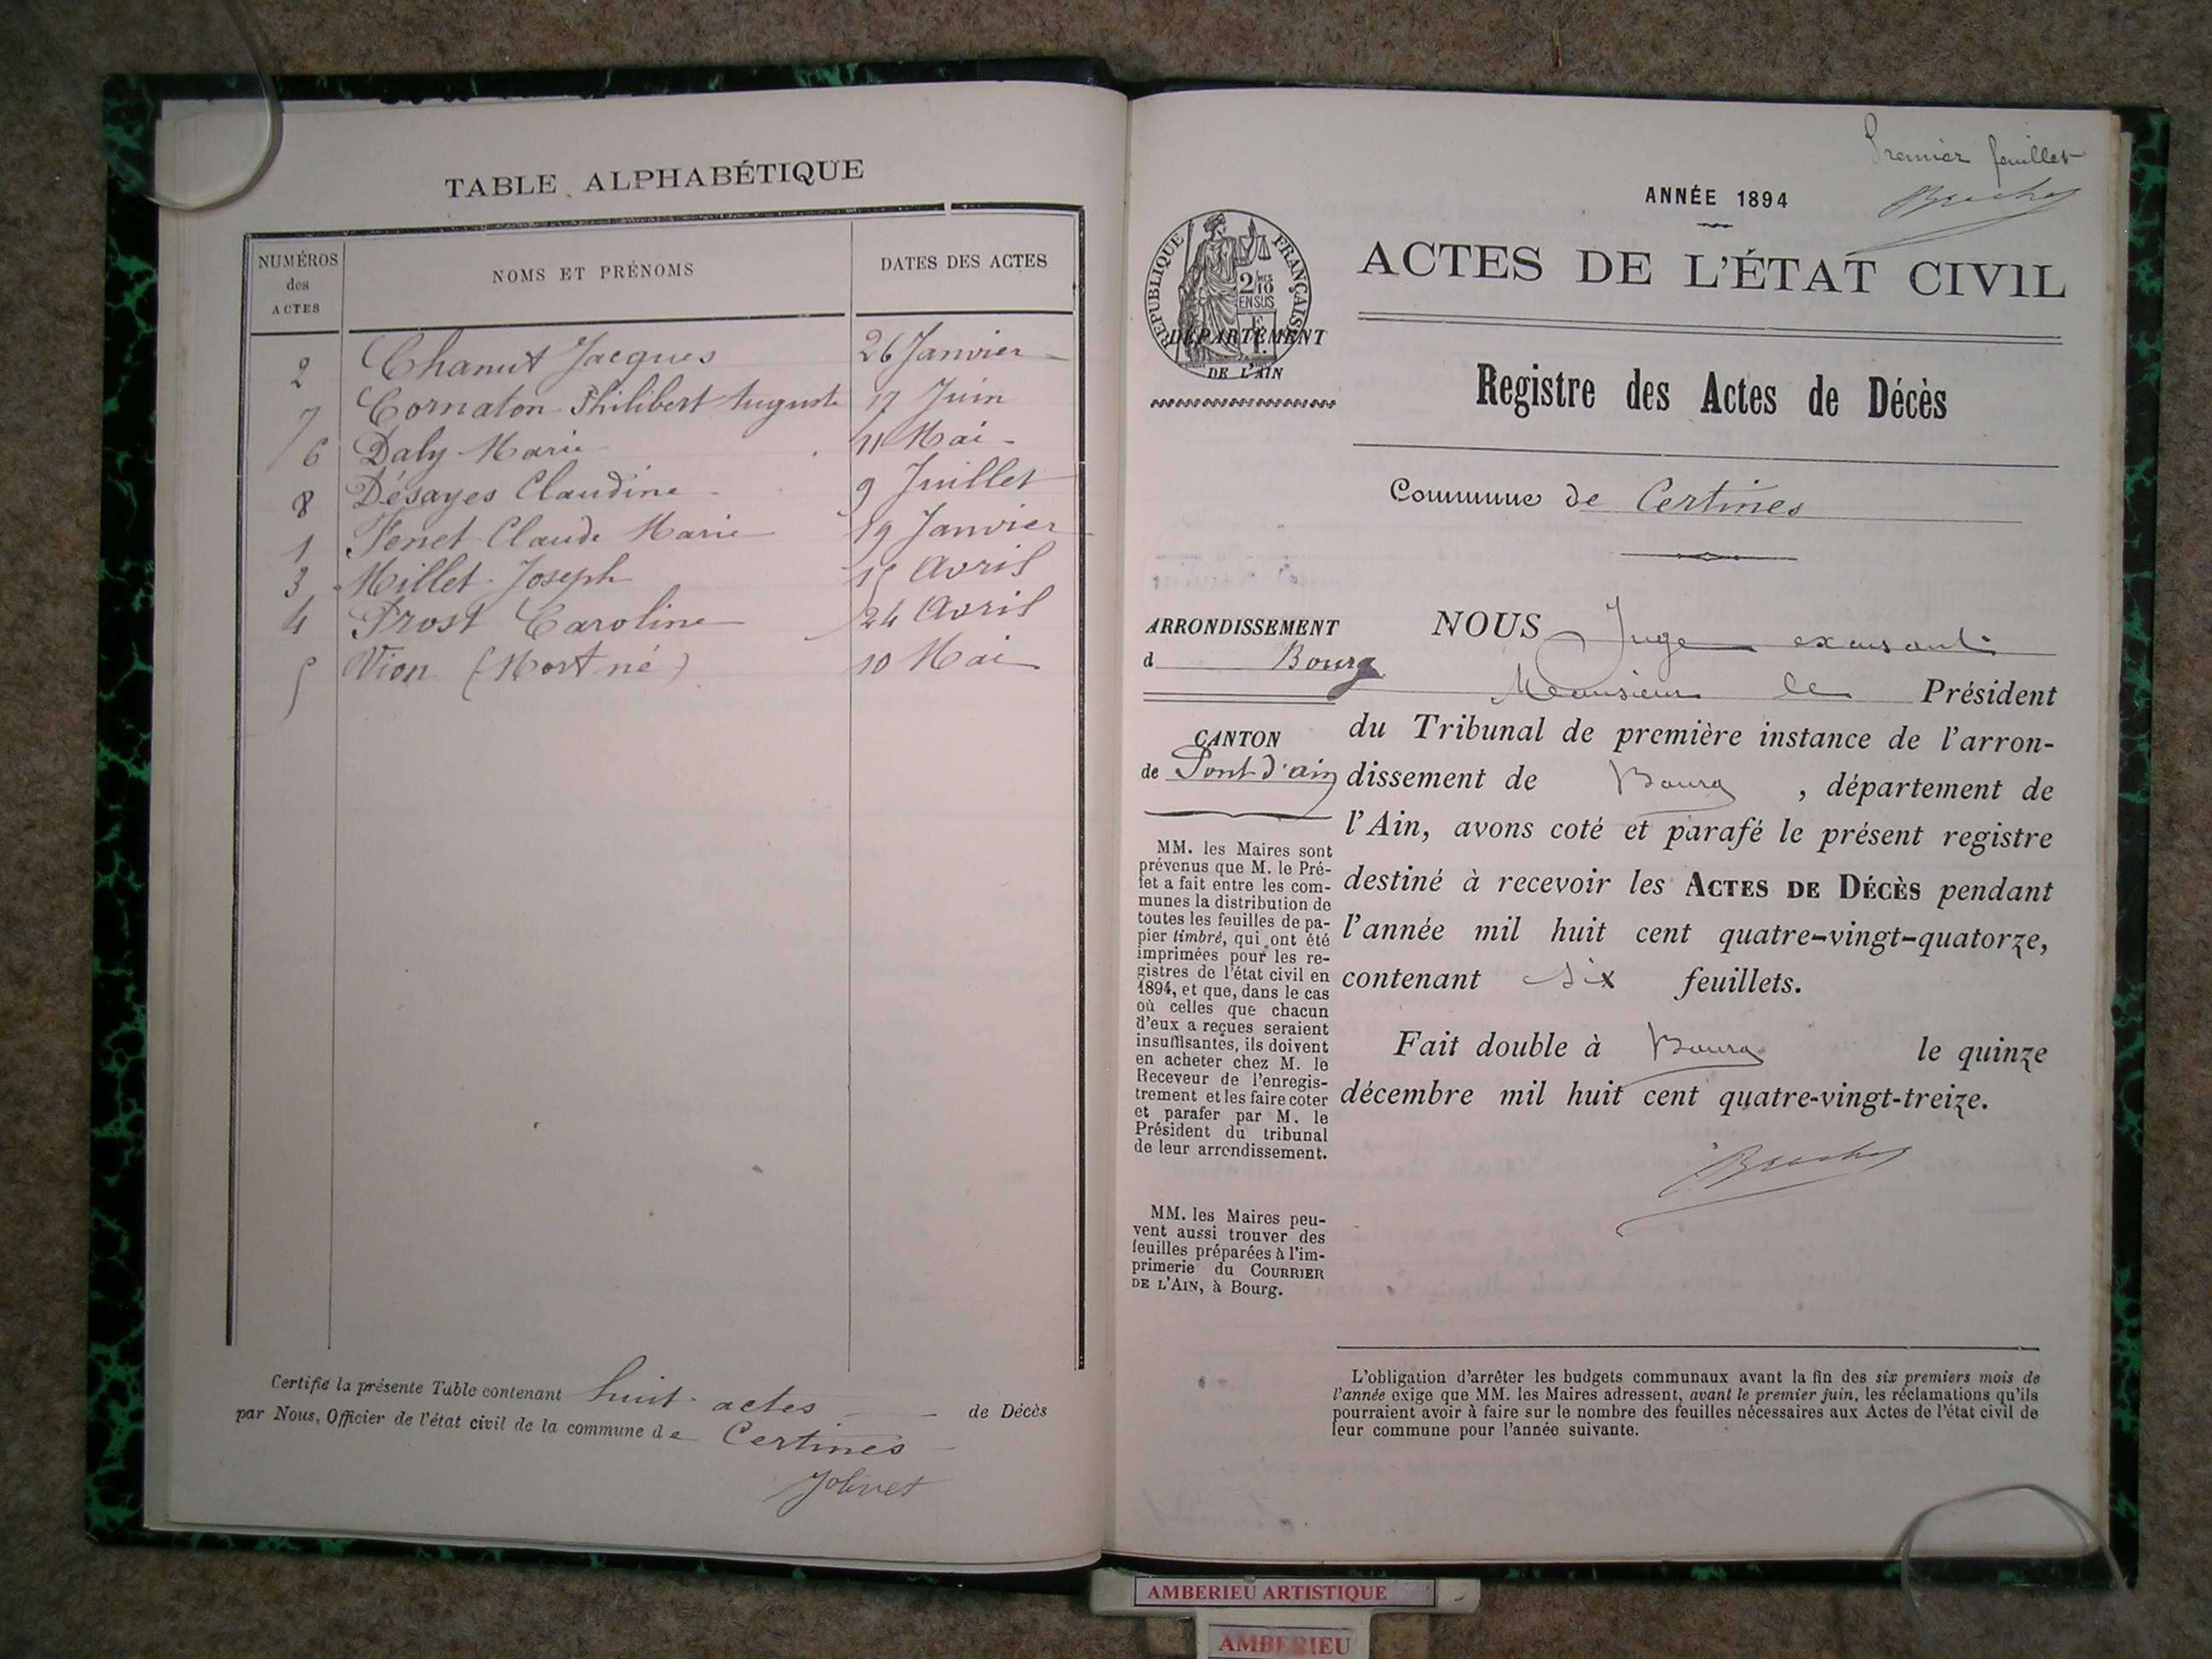 TABLE ALPHABÉTIQUE
NUMÉROS des ACTES
NOMS ET PRÉNOMS
DATES DES ACTES
2 Chanut Jacques 26 Janvier
7 Cornaton Philibert Auguste 17 Juin
6 Daly Marie 11 Mai
8 Désayes Claudine 9 Juillet
1 Fenet Claude Marie 19 Janvier
3 Millet Joseph 15 Avril
4 Prost Caroline 24 Avril
5 Vion (Mort né) 10 Mai
Certifié la présente Table contenant huit actes de Décès
par Nous, Officier de l'état civil de la commune de Certines
Jolivet
Premier feuillet
ANNÉE 1894
RÉPUBLIQUE FRANÇAISE
DÉPARTEMENT
DE L'AIN
ACTES DE L'ÉTAT CIVIL
Registre des Actes de Décès
Commune de Certines
ARRONDISSEMENT
d Bourg
CANTON
de Pont d'ain
MM. les Maires sont
prévenus que M. le Pré-
fet a fait entre les com-
munes la distribution de
toutes les feuilles de pa-
pier timbré, qui ont été
imprimées pour les re-
gistres de l'état civil en
1894, et que, dans le cas
où celles que chacun
d'eux a reçues seraient
insuffisantes, ils doivent
en acheter chez M. le
Receveur de l'enregis-
trement et les faire coter
et parafer par M. le
Président du tribunal
de leur arrondissement.
MM. les Maires peu-
vent aussi trouver des
feuilles préparées à l'im-
primerie du COURRIER
DE L'AIN, à Bourg.
NOUS Juge
Monsieur le Président
du Tribunal de première instance de l'arron-
dissement de Bourg , département de
l'Ain, avons coté et parafé le présent registre
destiné à recevoir les ACTES DE DÉCÈS pendant
l'année mil huit cent quatre-vingt-quatorze,
contenant six feuillets.
Fait double à Bourg le quinze
décembre mil huit cent quatre-vingt-treize.
L'obligation d'arrêter les budgets communaux avant la fin des six premiers mois de
l'année exige que MM. les Maires adressent, avant le premier juin, les réclamations qu'ils
pourraient avoir à faire sur le nombre des feuilles nécessaires aux Actes de l'état civil de
leur commune pour l'année suivante.
AMBERIEU ARTISTIQUE
AMBERIEU